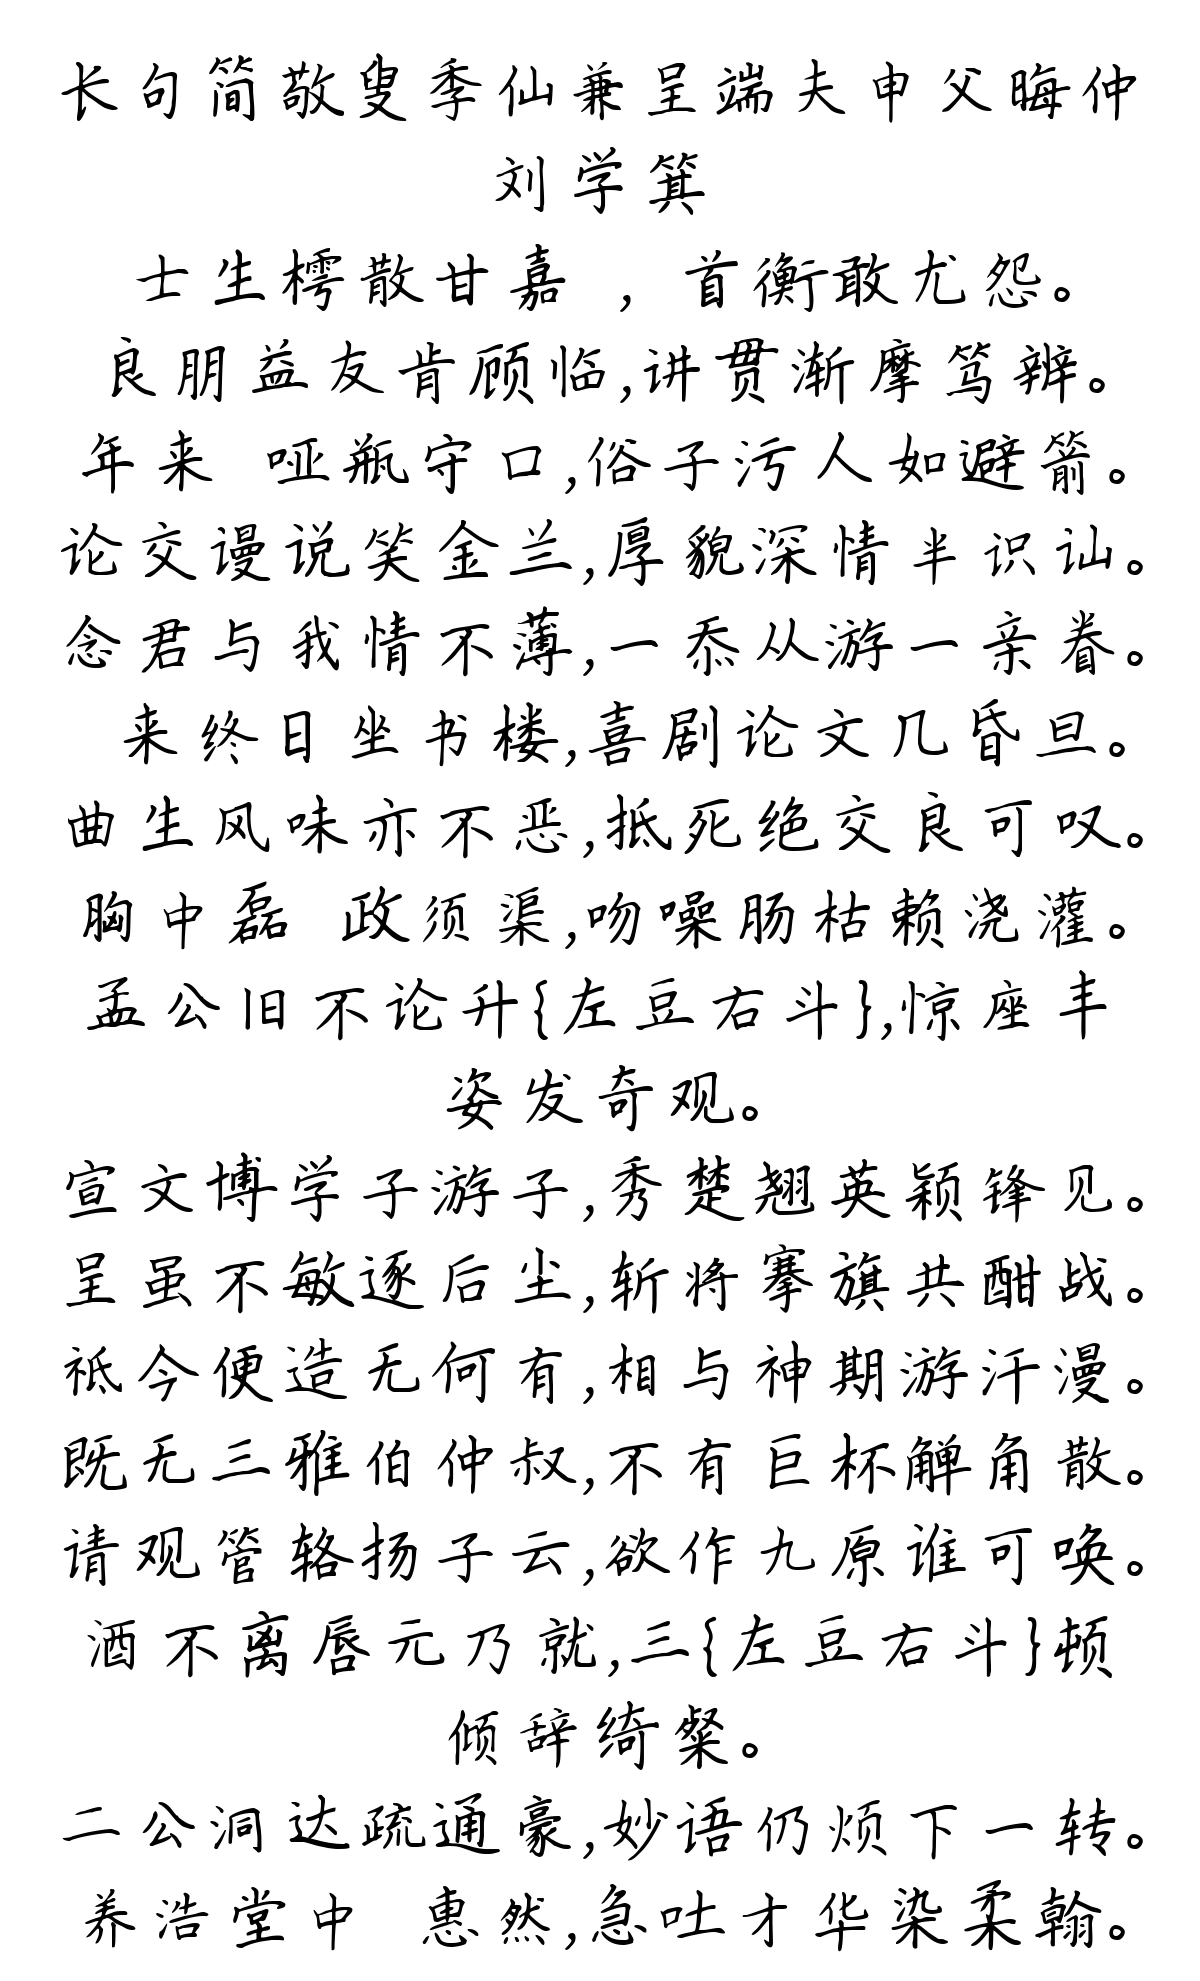 长句简敬叟季仙兼呈端夫申父晦仲
刘学箕
士生樗散甘嘉 ，首衡敢尤怨。
良朋益友肯顾临,讲贯渐摩笃辨。
年来 哑瓶守口,俗子污人如避箭。
论交谩说笑金兰,厚貌深情半识讪。
念君与我情不薄,一忝从游一亲眷。
来终日坐书楼,喜剧论文几昏旦。
曲生风味亦不恶,抵死绝交良可叹。
胸中磊 政须渠,吻噪肠枯赖浇灌。
孟公旧不论升{左豆右斗},惊座丰
姿发奇观。
宣文博学子游子,秀楚翘英颖锋见。
呈虽不敏逐后尘,斩将搴旗共酣战。
祗今便造无何有,相与神期游汗漫。
既无三雅伯仲叔,不有巨杯觯角散。
请观管辂扬子云,欲作九原谁可唤。
酒不离唇元乃就,三{左豆右斗}顿
倾辞绮粲。
二公洞达疏通豪,妙语仍烦下一转。
养浩堂中 惠然,急吐才华染柔翰。